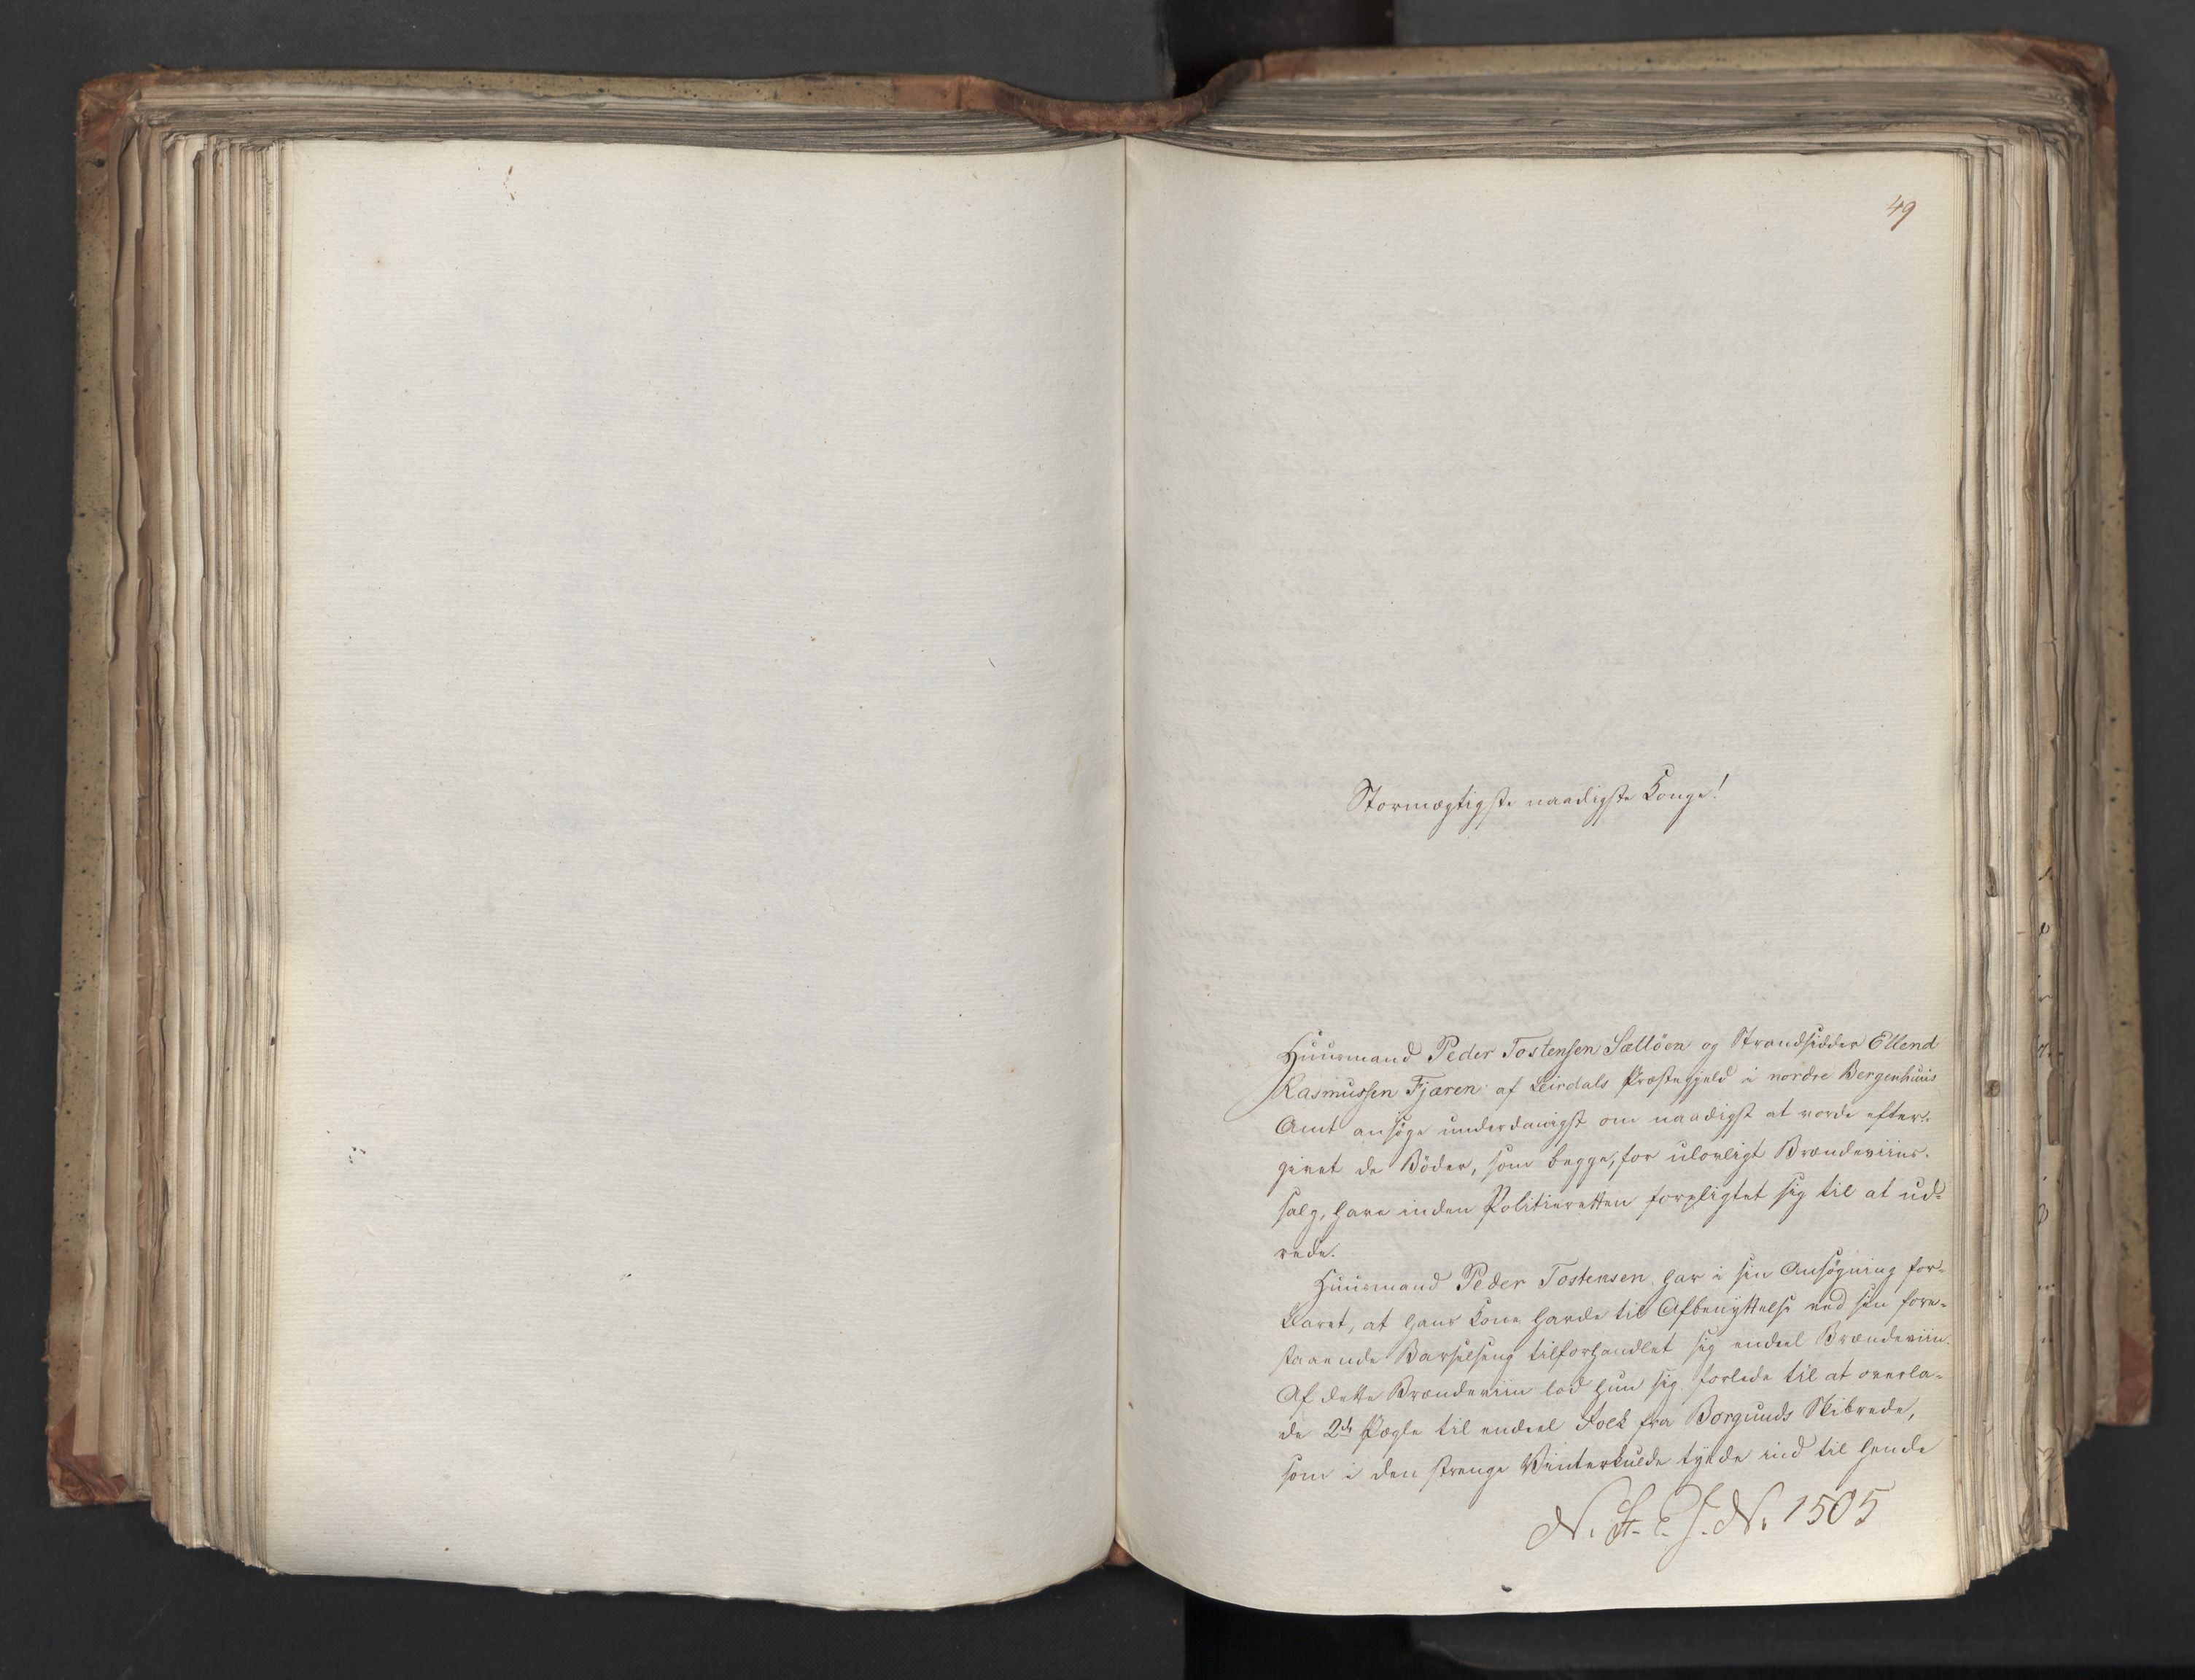 49
Stormægtigste naadigste Konge!
Huusmand Peder Tostensen SælTöen og Strandsidder Ellend
Rasmussen Fjæren af Leirdals Præstegjeld i nordre Bergenhuus
Amt ansøge underdanigst om naadigst at vorde efter-
givet de Böder, som begge, for ulovligt Brændeviins-
salg, have inden Politieretten forpligtet sig til at ud-
rede.
Huusmand Peder Tostensen har i sin Ansøgning for-
klaret, at hans Kone havde til Afbenyttelse ved sin fore-
staaende Barselseng tilforhandlet sig endeel Brændeviin.
Af dette Brændeviin lod hun sig forlede til at overla-
de 2de Pægle til endeel Folk fra Borgunds Skibrede,
som i den strenge Vinterkulde tyede ind til hende
N. St. E. J. N. 1505